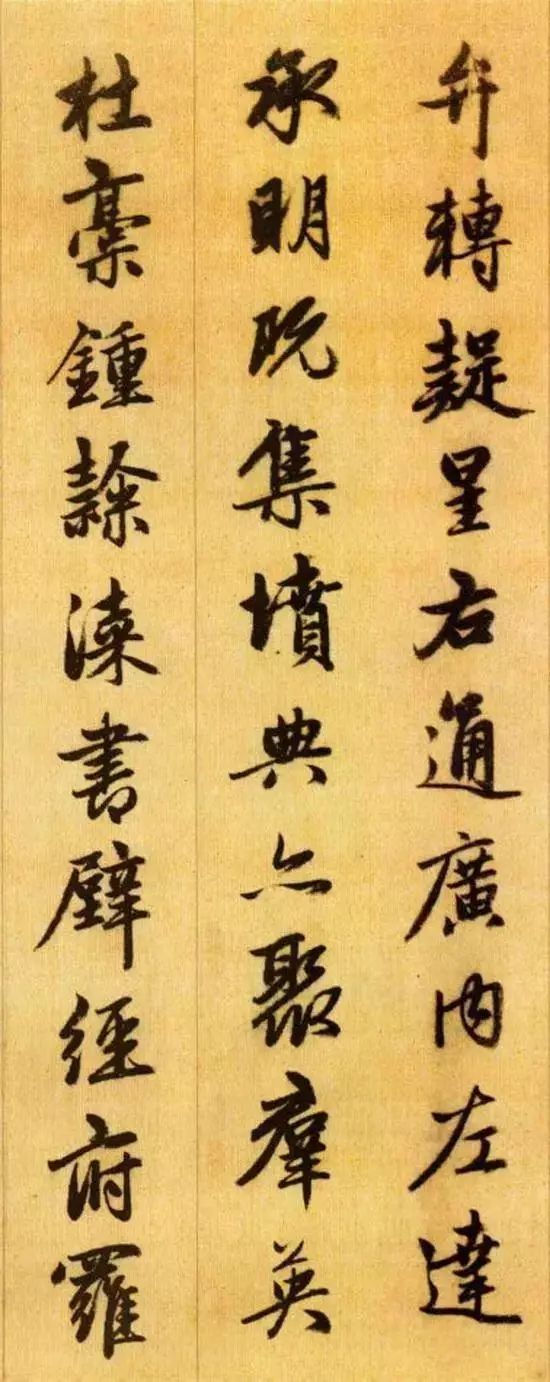 弁轉疑星右通廣内左達
承明既集墳典亦聚羣英
杜稾鍾隸漆書壁經府羅